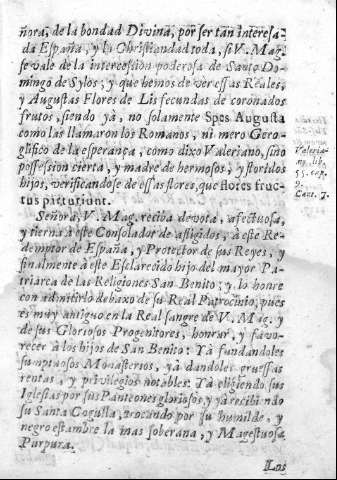 ñora, de la bondad Divina, por ser tan interesa-
da España, y la Christiandad toda, si V. Mag.
se vale de la intercession poderosa de Santo Do-
mingo de Sylos; y que hemos de ver essas Reales,
y Augustas Flores de Lis fecundas de coronados
frutos, siendo yà, no solamente Spes Augusta
como las llamaron los Romanos, ni mero Gero-
glifico de la esperança, como dixo Valeriano, sino
possession cierta, y madre de hermosos, y floridos
hijos, verificandose de essas flores, que flores fruc-
tus parturiunt.
Valeria-
no, lib.
55. cap.
9.
Cant. 7.
Señora, V. Mag. reciba devota, afectuosa,
y tierna à este Consolador de afligidos, à este Re-
demptor de España, y Protector de sus Reyes, y
finalmente à este Esclarecido hijo del mayor Pa-
triarca de las Religiones San Benito; y lo honre
con admitirlo debaxo de su Real Patrocinio, pues
es muy antiguo en la Real sangre de V. Mag. y
de sus Gloriosos Progenitores, honrar, y favo-
recer à los hijos de San Benito: Yà fundandoles
sumptuosos Monasterios, yà dandoles gruessas
rentas, y privilegios notables: Yà eligiendo sus
Iglesias por sus Panteones gloriosos, y yà recibiendo
su Santa Cogulla, trocando por su humilde, y
negro estambre la mas soberana, y Magestuosa
Purpura.
Los